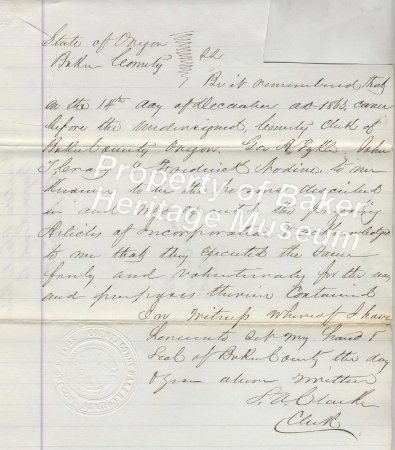 State of Oregon
Baker County } SS
Be it remembered that
on the 14th day of December AD 186, came
before the undersigned, County Clerk of
Baker County Oregon, Geo
J Cray & Frederick Nodine to me
Known to be the persons described
in and who the foregoing
Articles of Incorporation acknowledged
to me that they executed the same
freely and voluntarily for the uses
and purposes therein contained
In witness whereof I have
hereunto set my hand &
Seal of Baker County the day
& year above written
Clerk
Property of Baker
Heritage Museum